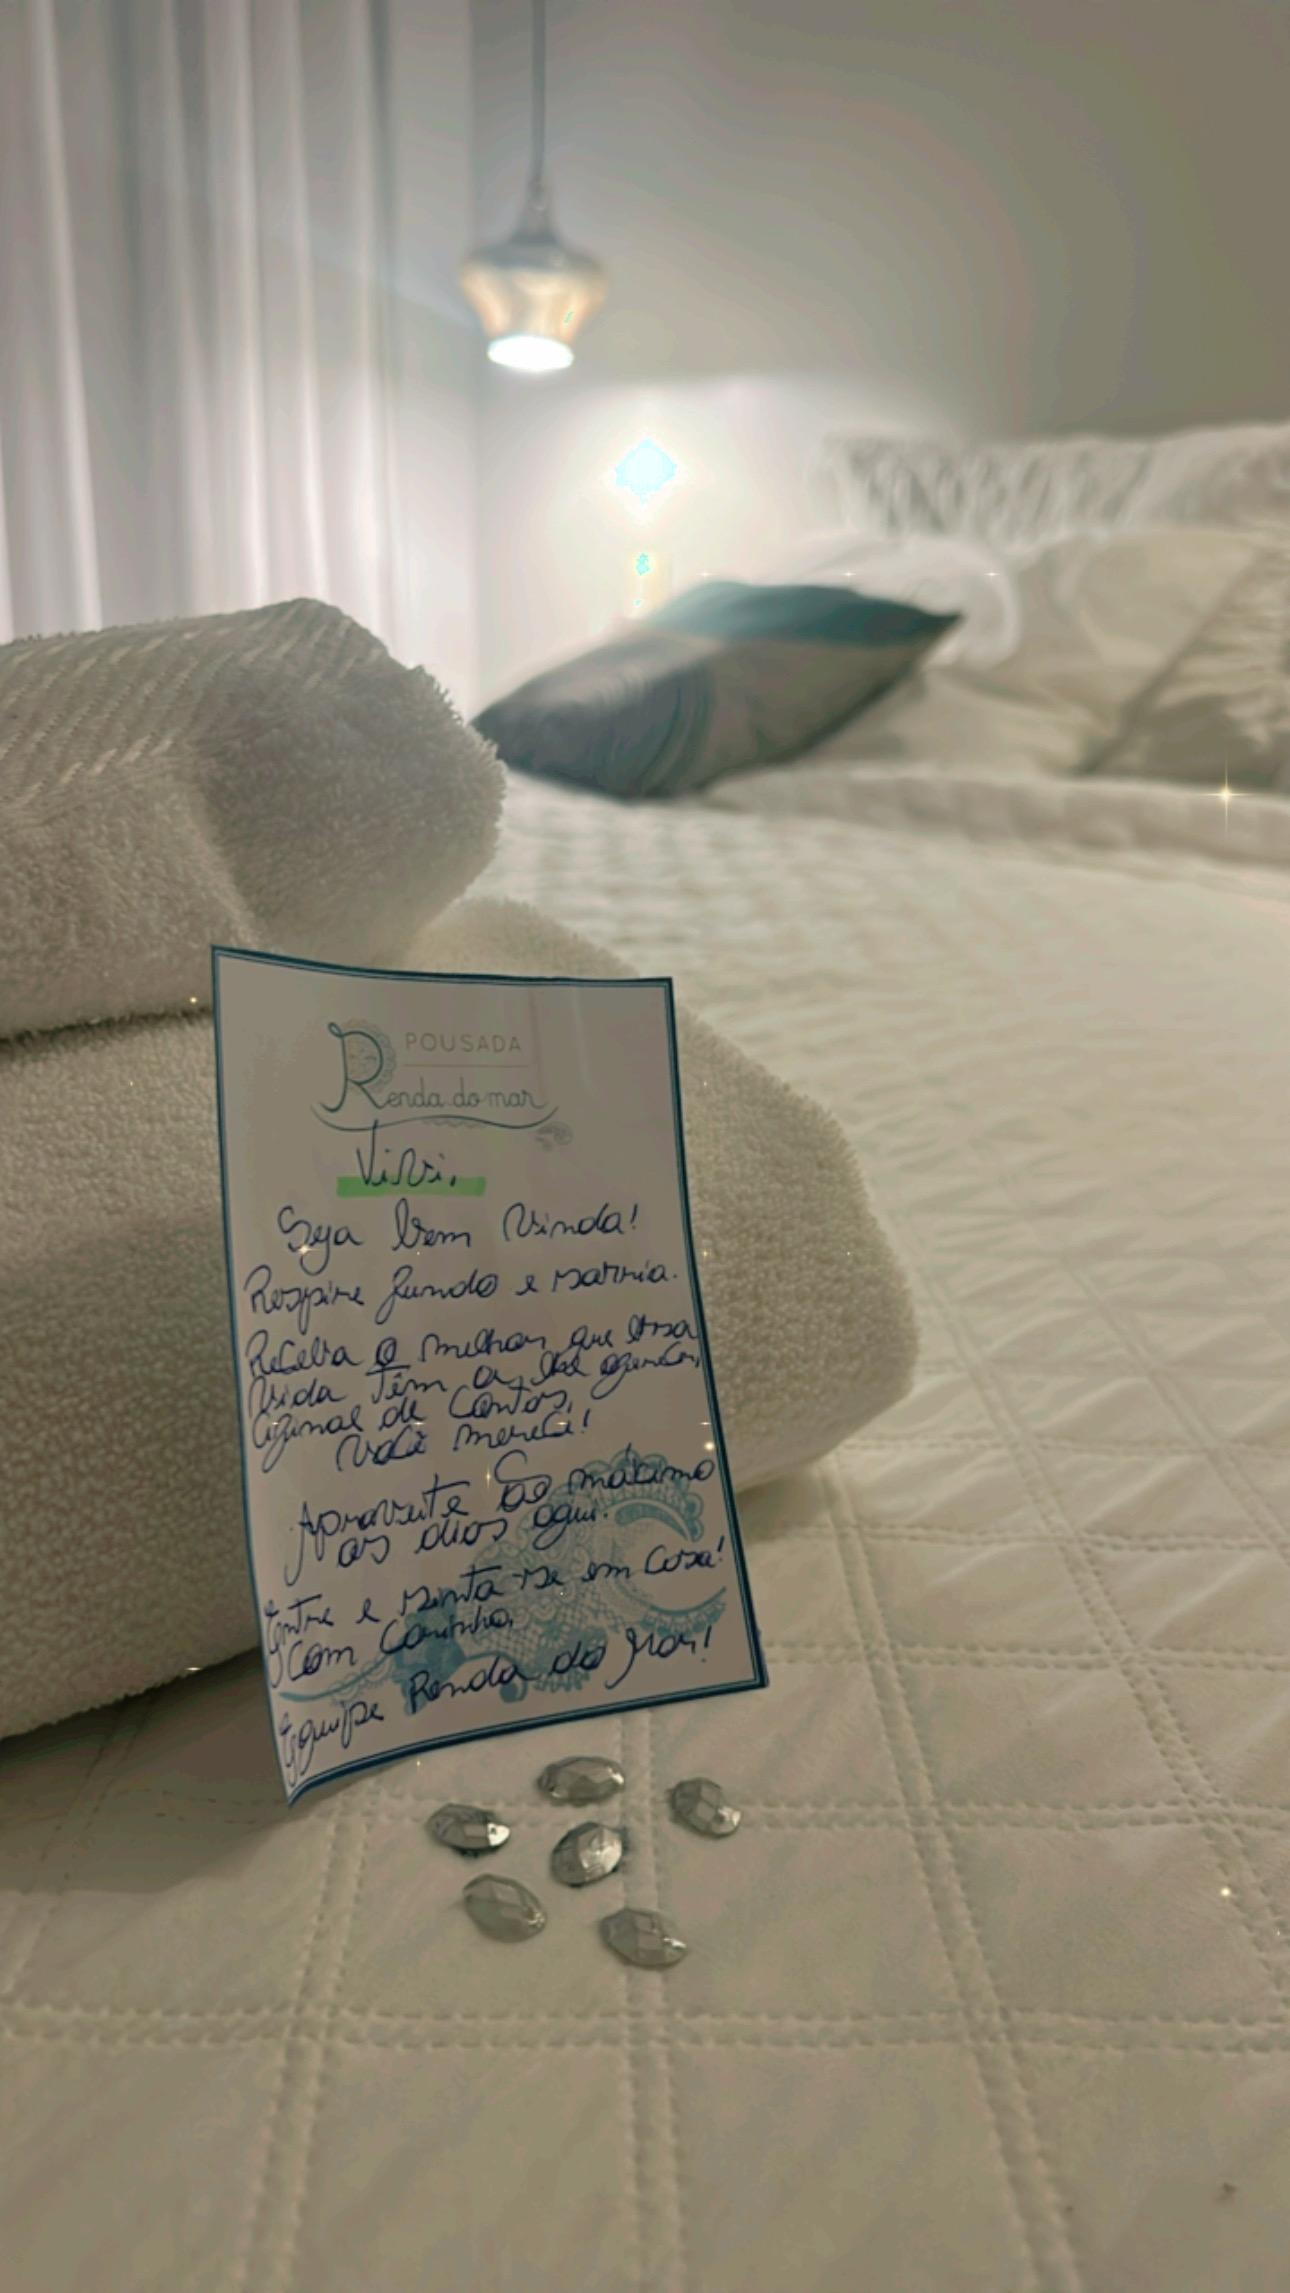 POUSADA
Renda do mar
Vivi,
Seja bem vinda!
Respire fundo e sorria.
Receba o melhor que essa
vida têm a lhe oferecer,
afinal de contas,
você merece!
Aproveite ao máximo
os dias aqui.
Entre e sinta-se em casa!
Com carinho,
Equipe Renda do Mar!